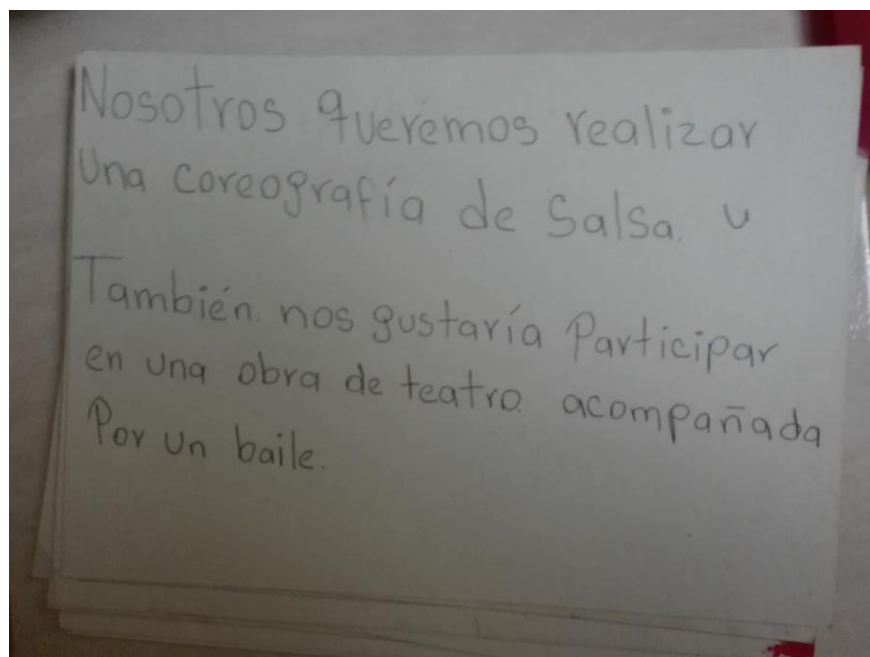 Nosotros queremos realizar
una coreografía de Salsa. v
También. nos gustaría Participar
en una obra de teatro. acompañada
Por un baile.